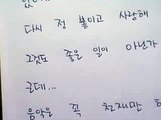 다시 정 붙이고 사랑해
그것도 좋은 일이 아닌가
근데...
음악은 꼭 천재만 하